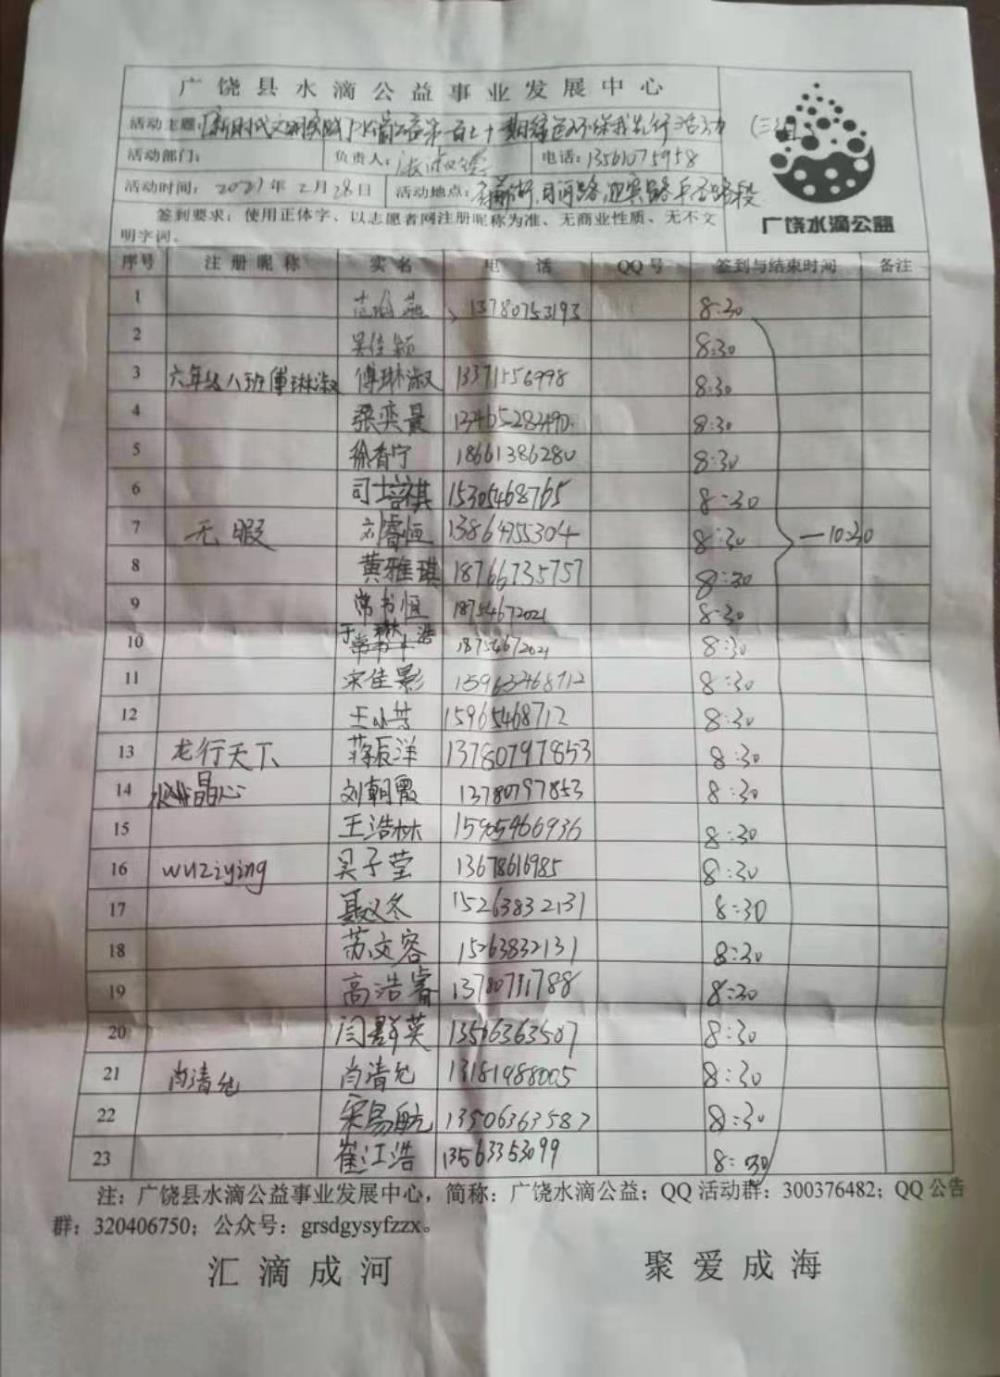 广饶县水滴公益事业发展中心
活动主题：新时代文明实践 第一百七十期绿色环保我先行活动
活动部门： 负责人： 电话：13561075958
活动时间：2021年2月28日 活动地点：
签到要求：使用正体字、以志愿者网注册昵称为准、无商业性质、无不文
明字词。
广饶水滴公益
序号 注册昵称 实名 电话 QQ号 签到与结束时间 备注
1 13780753193 8:30
2 吴佳颖 8:30
3 六年级八班傅琳淑 傅琳淑 13371556998 8:30
4 梁奕晨 13465283490 8:30
5 徐香宁 18661386280 8:30
6 司培祺 15305468765 8:30
7 无暇 刘睿恒 13864755304 8:30 —10:30
8 黄雅琪 18766735757 8:30
9 常书恒 18754672021 8:30
10 18754672021 8:30
11 宋佳影 15963468712 8:30
12 王小芳 15965468712 8:30
13 龙行天下 蒋辰洋 13780797853 8:30
14 晶心 刘朝霞 13780797853 8:30
15 王浩林 15905466936 8:30
16 wuziying 吴子莹 13678616985 8:30
17 聂义冬 15263832131 8:30
18 苏文容 15263832131 8:30
19 高浩睿 13780711788 8:30
20 闫群英 13506363507 8:30
21 尚清允 尚清允 13181988005 8:30
22 宋易航 13506363587 8:30
23 崔江浩 13563353099 8:30
注：广饶县水滴公益事业发展中心，简称：广饶水滴公益；QQ活动群：300376482；QQ公告
群：320406750；公众号：grsdgysyfzzx。
汇滴成河 聚爱成海